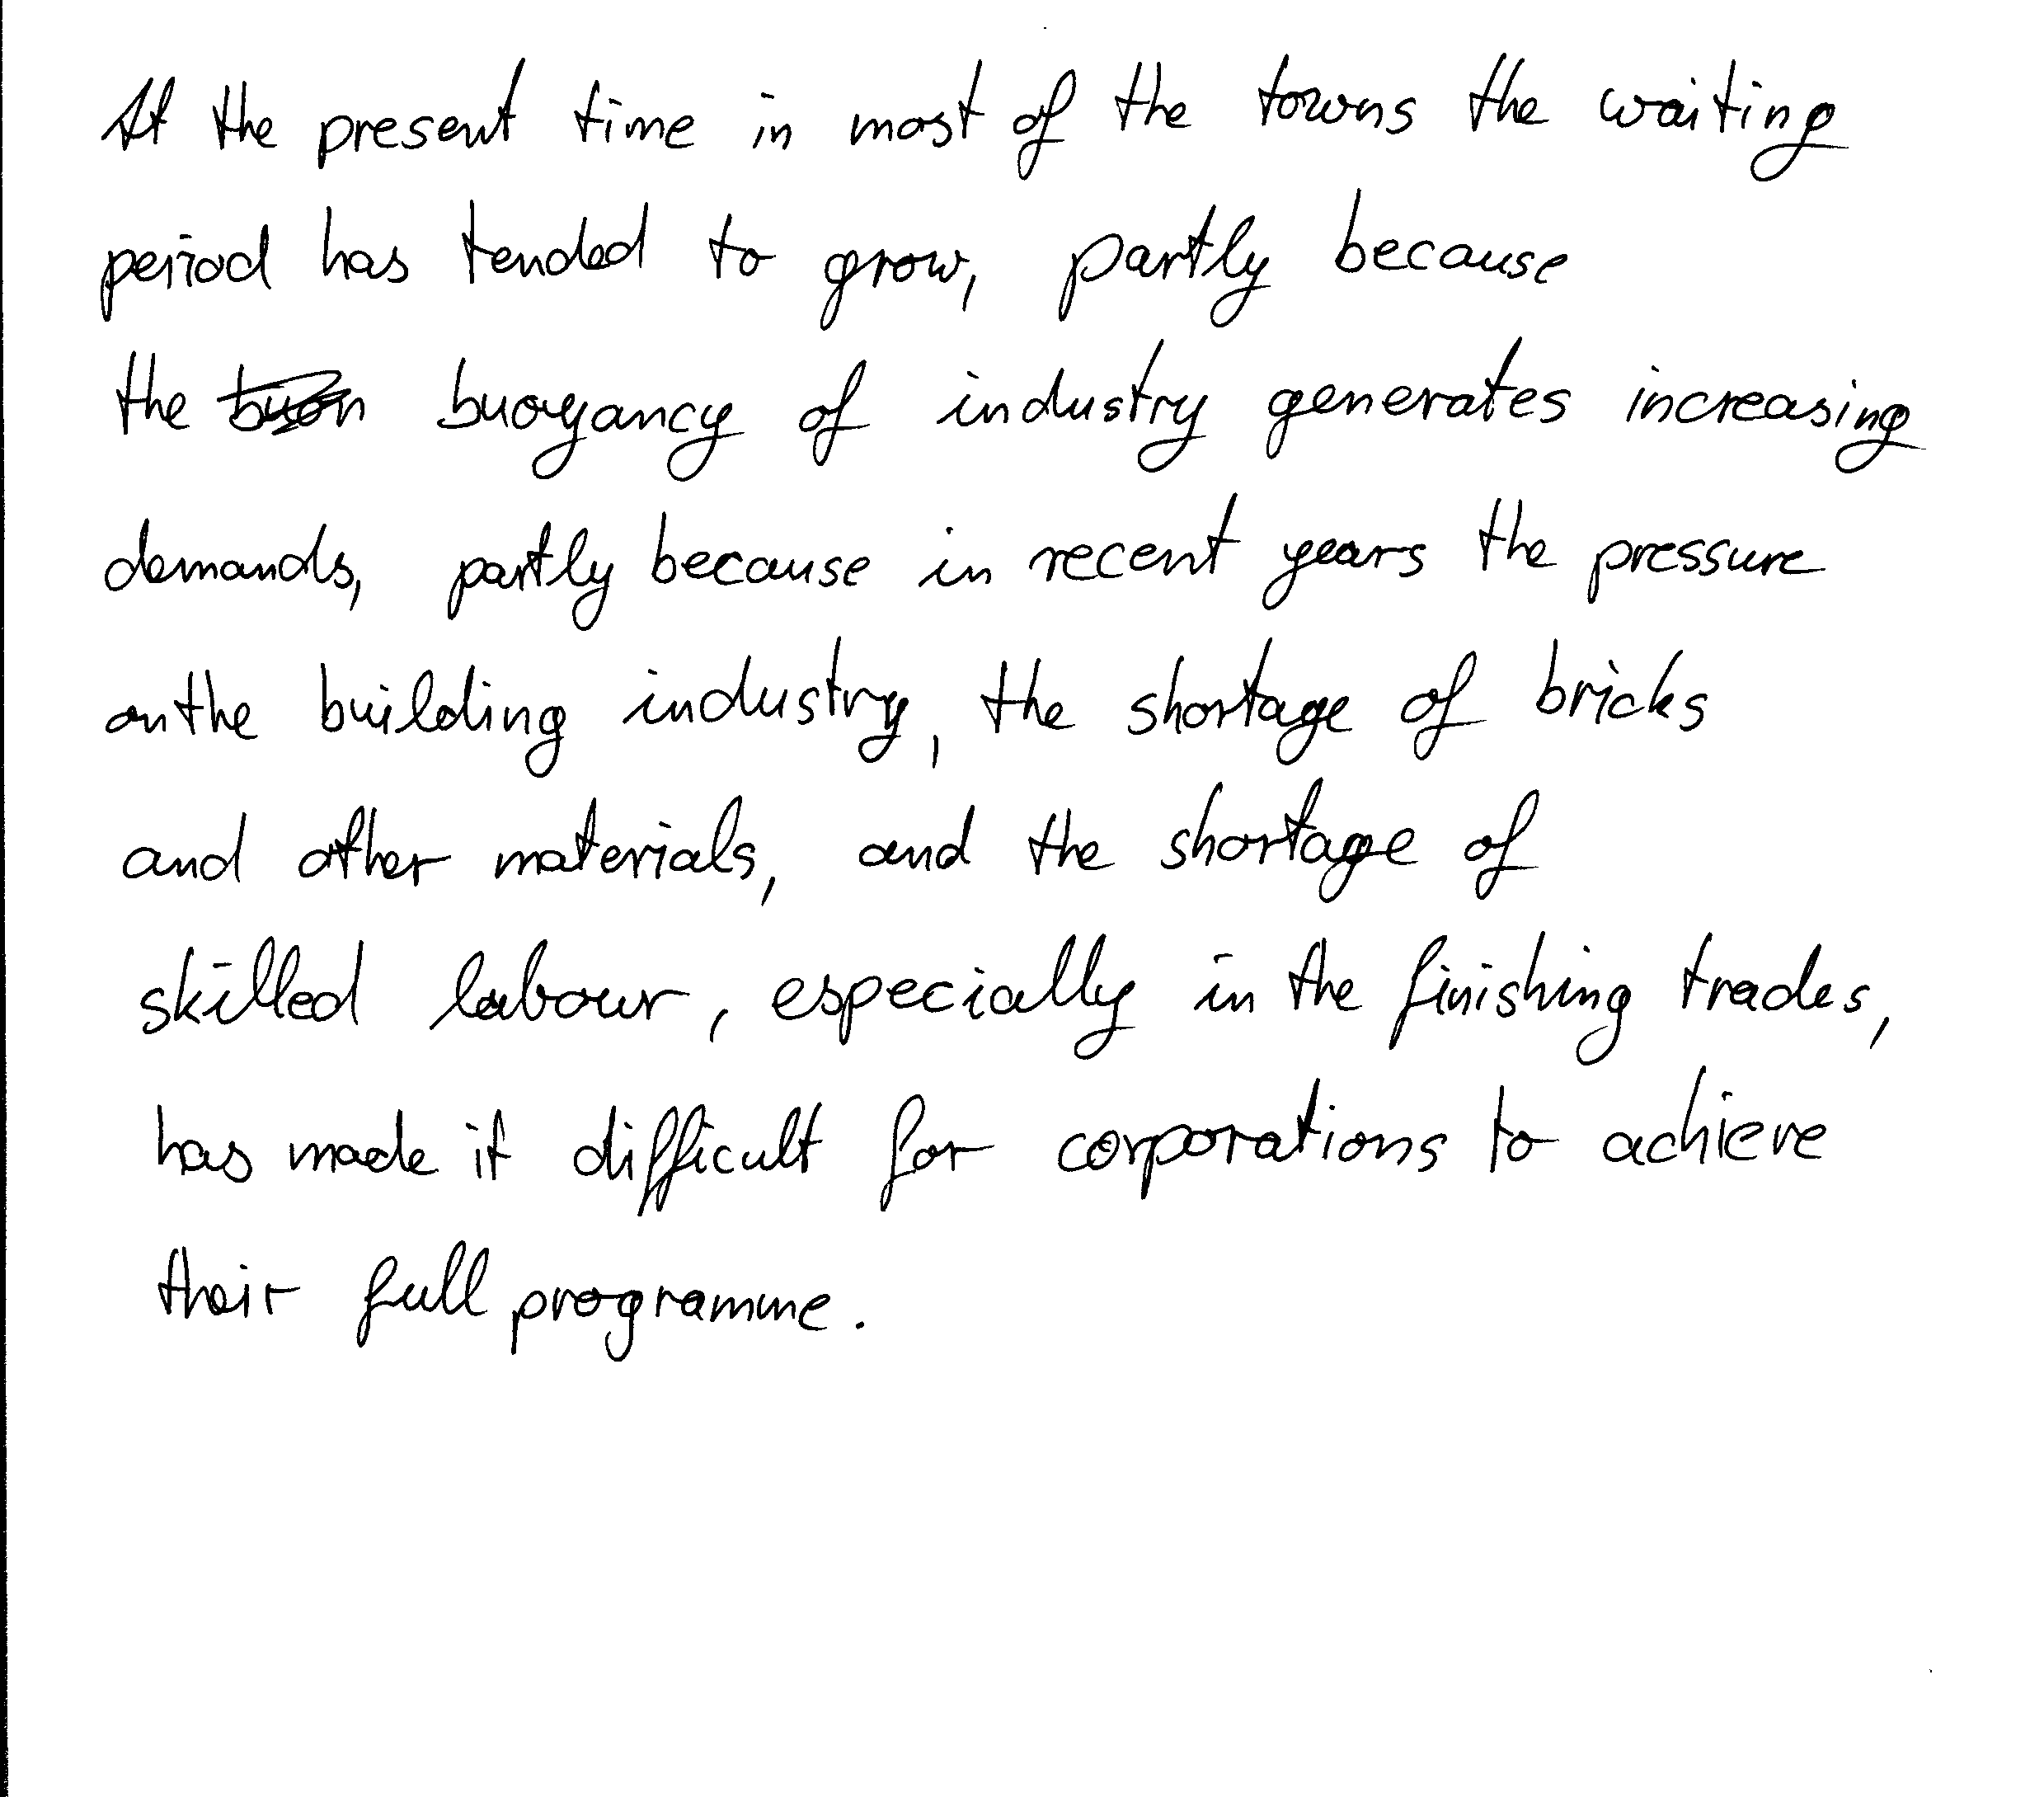 At the present time in most of the towns the waiting
period has tended to grow, partly because
the buoyancy of industry generates increasing
demands, partly because in recent years the pressure
on the building industry, the shortage of bricks
and other materials, and the shortage of
skilled labour, especially in the finishing trades,
has made it difficult for corporations to achieve
their full programme.